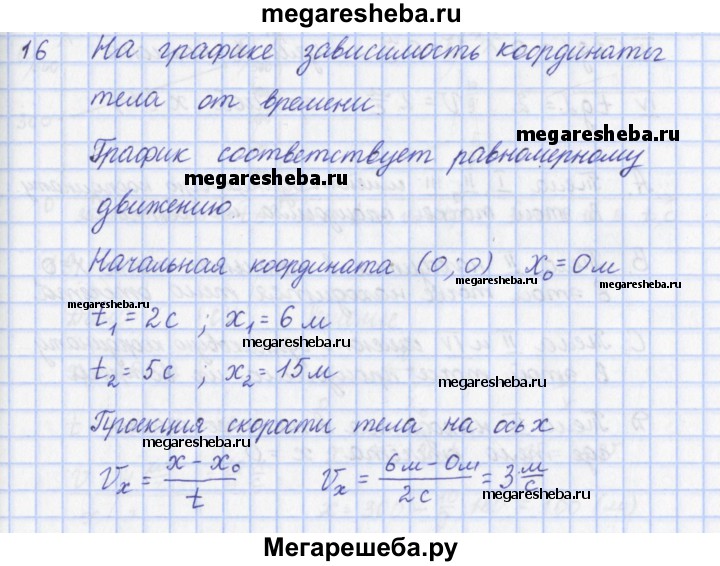 megaresheba.ru
16 На графике зависимость координаты
тела от времени
megaresheba.ru
График соответствует равномерному
megaresheba.ru
движению
Начальная координата (0;0) x₀=0м
megaresheba.ru
megaresheba.ru
t₁=2с ; x₁=6м
megaresheba.ru
t₂=5с ; x₂=15м
megaresheba.ru
Проекция скорости тела на ось x
megaresheba.ru
Vₓ = (x-x₀)/t Vₓ = (6м-0м)/2с = 3 м/с
megaresheba.ru
Мегарешеба.ру